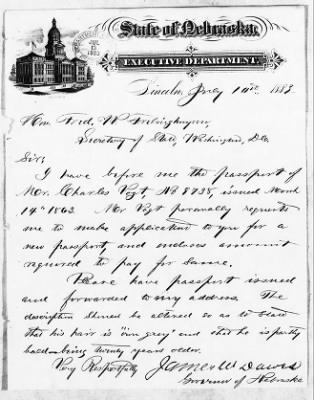 State of Nebraska,
EXECUTIVE DEPARTMENT.
Lincoln, July 10th 1883
Hon. Fred. W Frelinghuysen,
Secretary of State, Washington, D.C.
Sir;
I have before me the passport of
Mr. Charles Vogt No 8738, issued March
14th 1863. Mr Vogt personally requests
me to make application to you for a
new passport, and incloses amount
required to pay for same.
Please have passport issued
and forwarded to my address. The
description should be altered so as to state
that his hair is "iron grey" and that he is partly
bald—being twenty years older.
Very Respectfully James W Dawes
Governor of Nebraska